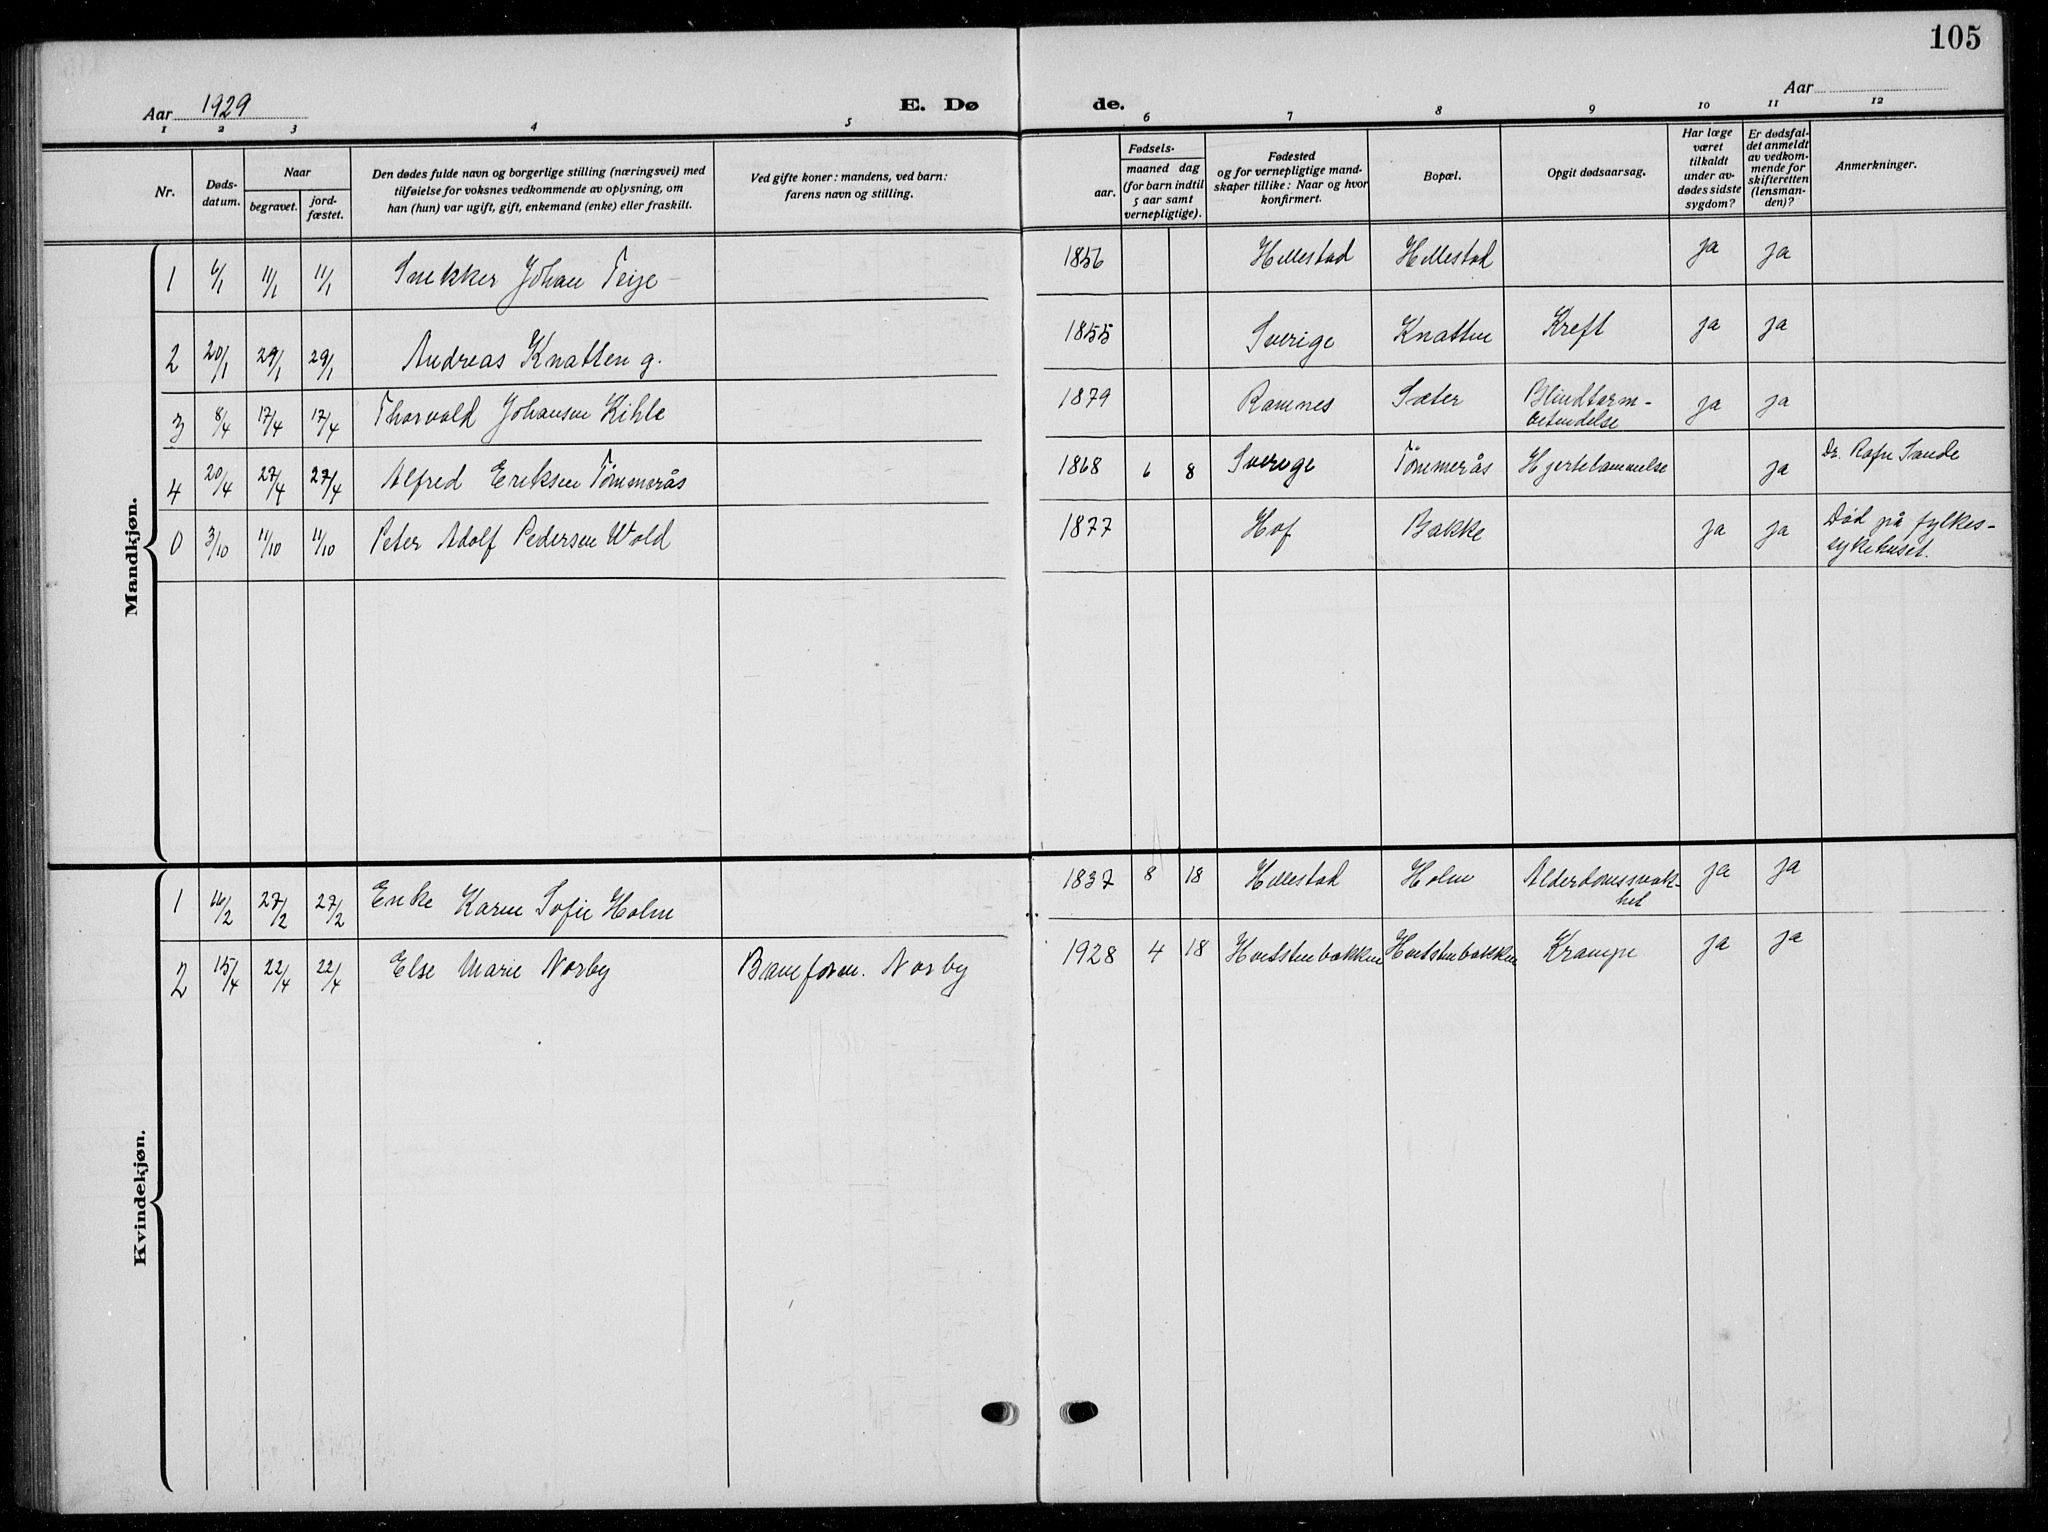 105
Aar 1929
E. Dø
de.
Aar
1 2 3 4 5 6 7 8 9 10 11 12
Nr.
Døds-
datum.
Naar
begravet.
jord-
fæstet.
Den dødes fulde navn og borgerlige stilling (næringsvei) med
tilføielse for voksnes vedkommende av oplysning, om
han (hun) var ugift, gift, enkemand (enke) eller fraskilt.
Ved gifte koner: mandens, ved barn:
farens navn og stilling.
Fødsels-
aar.
maaned dag
(for barn indtil
5 aar samt
vernepligtige).
Fødested
og for vernepligtige mand-
skaper tillike: Naar og hvor
konfirmert.
Bopæl.
Opgit dødsaarsag.
Har læge
været
tilkaldt
under av-
dødes sidste
sygdom?
Er dødsfal-
det anmeldt
av vedkom-
mende for
skifteretten
(lensman-
den)?
Anmerkninger.
Mandkjøn.
1 6/1 11/1 11/1 Snekker Johan Teije 1856 Hillestad Hillestad ja ja
2 20/1 29/1 29/1 Andreas Knatten g. 1855 Sverige Knatten Kreft ja ja
3 8/4 17/4 17/4 Thorvald Johansen Kihle 1879 Ramnes Sæter Blindtarm-
betendelse ja ja
4 20/4 27/4 27/4 Alfred Eriksen Tømmerås 1868 6 8 Sverige Tømmerås Hjertelammelse ja Dr. Rafn Sande
0 3/10 11/10 11/10 Peter Adolf Pedersen Wold 1877 Hof Bakke ja ja Død på fylkes-
sykehuset.
Kvindekjøn.
1 16/2 27/2 27/2 Enke Karen Sofie Holm 1837 8 18 Hillestad Holm Alderdomssvak-
het ja ja
2 15/4 22/4 22/4 Else Marie Norby Baneform. Norby 1928 4 18 Hvitstenbakken Hvitstenbakken Krampe ja ja